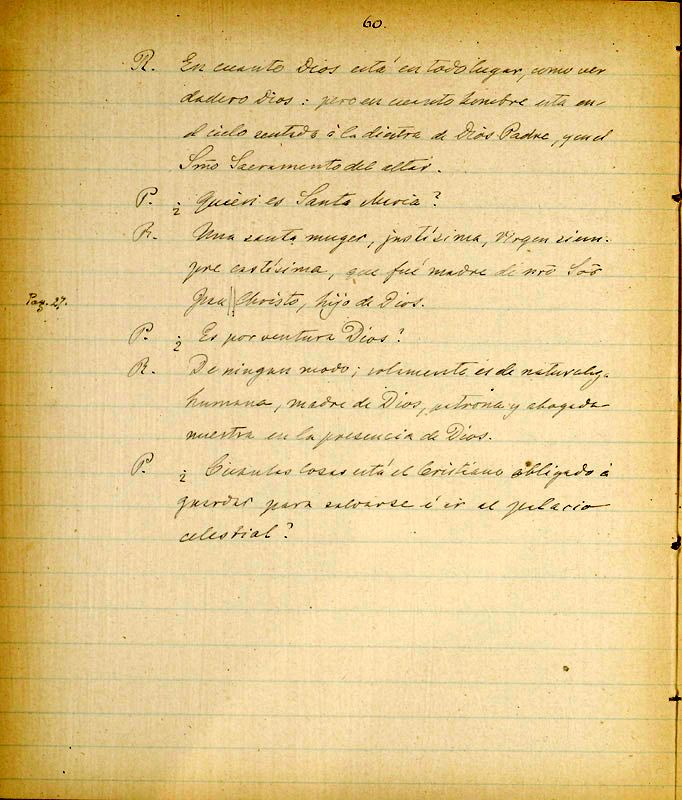 60.
R. En cuanto Dios está en todo lugar, como ver
dadero Dios: pero en cuanto hombre esta en
el cielo sentado á la diestra de Dios Padre, y en el
Smo Sacramento del altar.
P. ¿ Quién es Santa Maria?
R. Una santa muger, justísima, Virgen siem-
pre castísima, que fué madre de nrō Soō
Pag. 27. Jesu || Christo, hijo de Dios.
P. ¿ Es por ventura Dios?
R. De ningun modo; solamente es de naturaleza
humana, madre de Dios, patrona y abogada
nuestra en la presencia de Dios.
P. ¿ Cuantas cosas está el Cristiano obligado á
guardar para salvarse é ir al palacio
celestial?